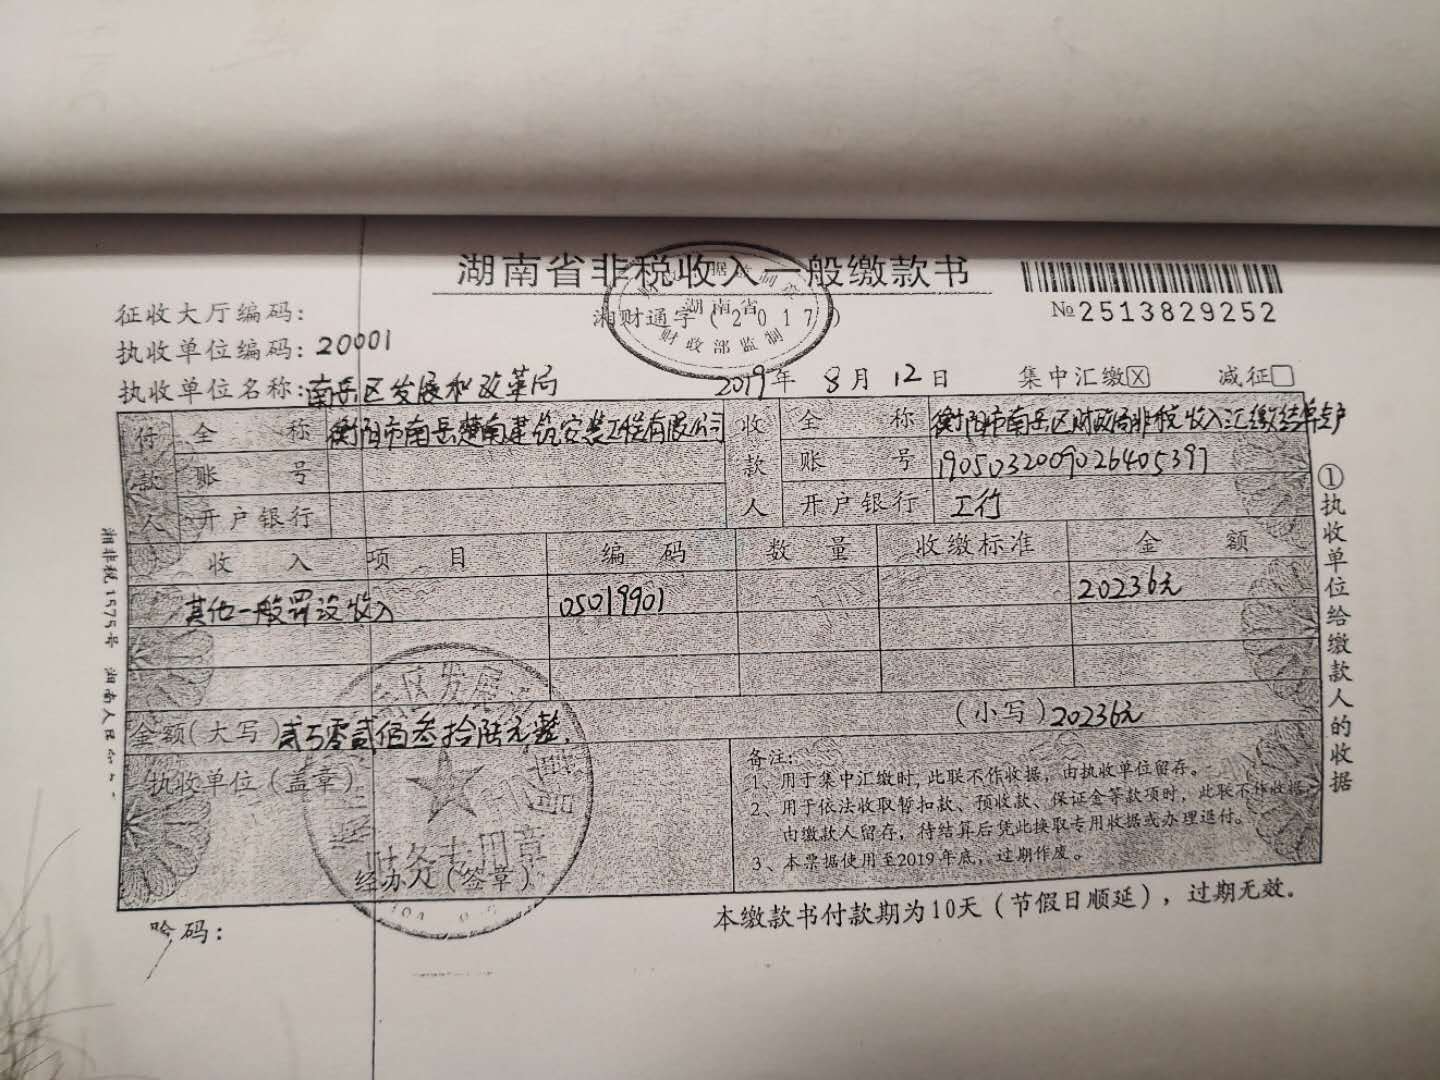 湖南省非税收入一般缴款书
湘财通字(2017)
湖南省
财政部监制
№2513829252
征收大厅编码:
执收单位编码:20001
执收单位名称:南岳区发展和改革局 2019年8月12日 集中汇缴☒ 减征☐
付款人 全称 衡阳市南岳楚南建筑安装工程有限公司 收款人 全称 衡阳市南岳区财政局非税收入汇缴结算专户
账号 账号 1905032009026405397
开户银行 开户银行 工行
收入项目 编码 数量 收缴标准 金额
其他一般罚没收入 05019901 20236元
金额(大写)贰万零贰佰叁拾陆元整. (小写)20236元
执收单位(盖章)
区发展
财务专用章
经办人(签章)
备注:
1、用于集中汇缴时,此联不作收据,由执收单位留存。
2、用于依法收取暂扣款、预收款、保证金等款项时,此联不作收据,
由缴款人留存,待结算后凭此换取专用收据或办理退付。
3、本票据使用至2019年底,过期作废。
①执收单位给缴款人的收据
湘非税1575号 湖南人民
码:
本缴款书付款期为10天(节假日顺延),过期无效。